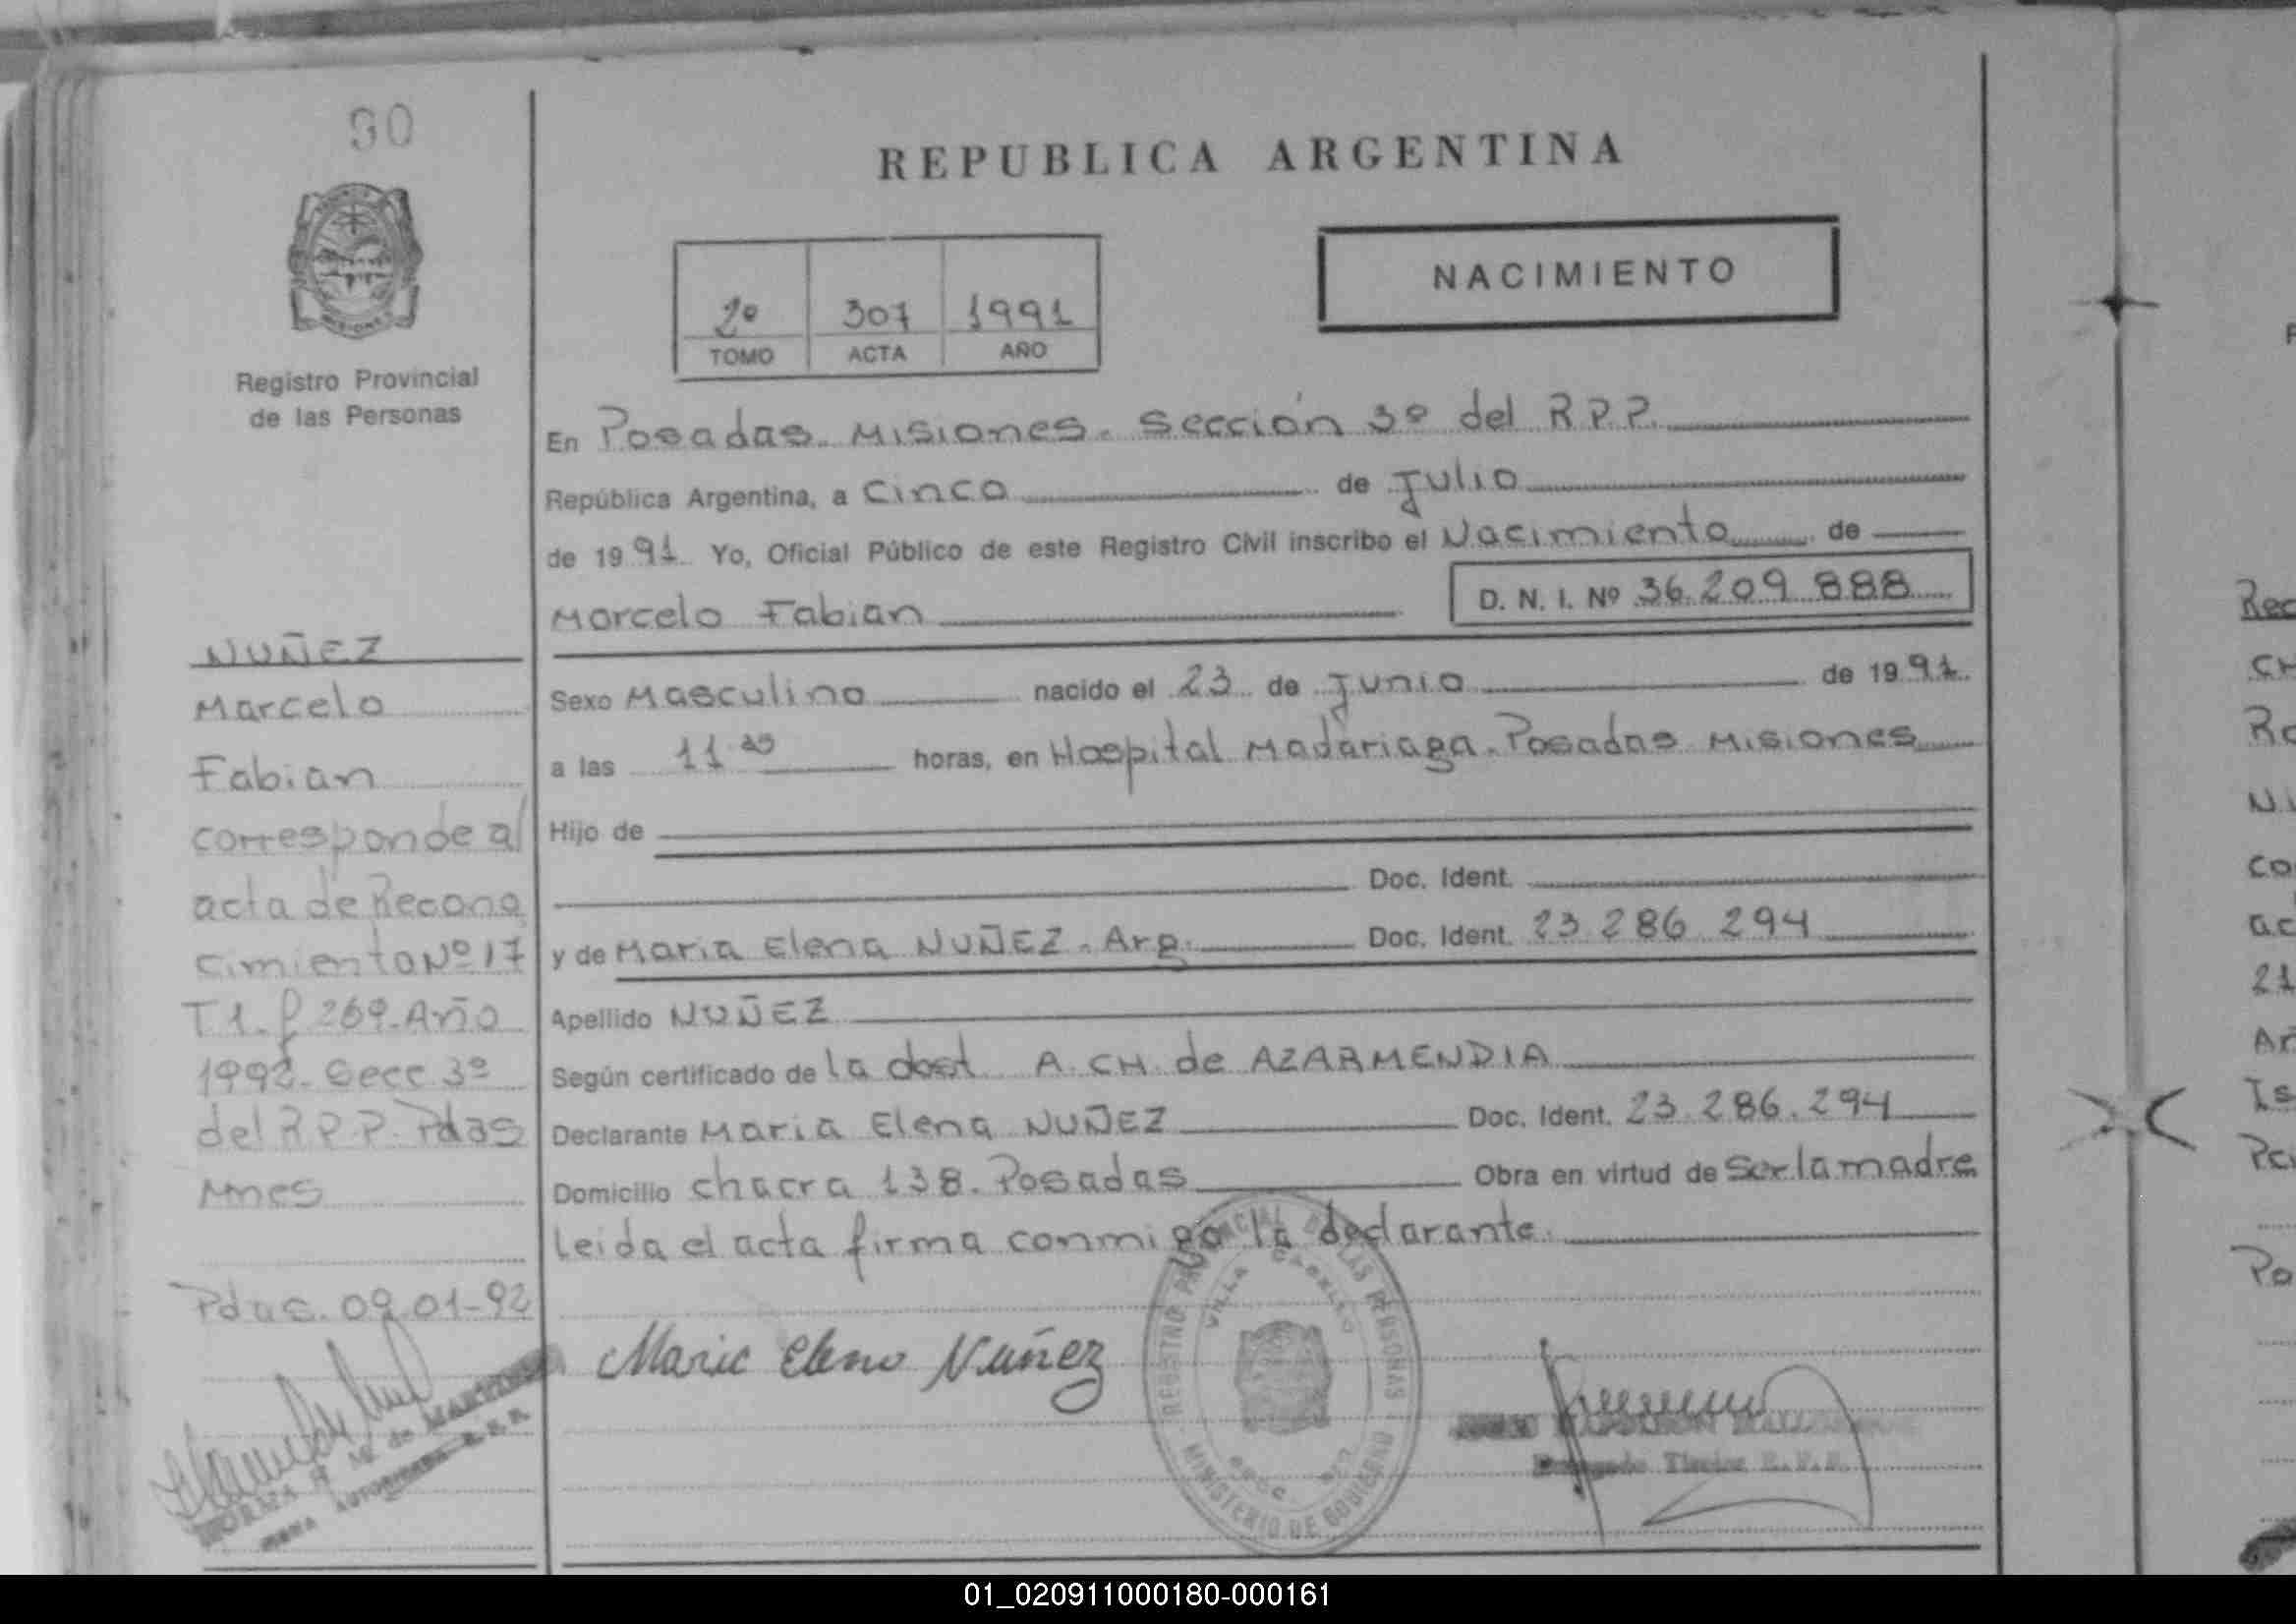 90
REPUBLICA ARGENTINA
NACIMIENTO
2º 307 1991
TOMO ACTA AÑO
MISIONES
Registro Provincial
de las Personas
En Posadas. Misiones. Sección 3º del R.P.P.
República Argentina, a Cinco de Julio
de 1991 Yo, Oficial Público de este Registro Civil inscribo el Nacimiento de
Marcelo Fabian D. N. I. Nº 36.209.888
Sexo Masculino nacido el 23 de Junio de 1991.
a las 11 horas, en Hospital Madariaga. Posadas Misiones
Hijo de
Doc. Ident.
y de Maria Elena NUÑEZ. Arg. Doc. Ident. 23.286.294
Apellido NUÑEZ
Según certificado de la obst A. CH. de AZARMENDIA
Declarante Maria Elena NUÑEZ Doc. Ident. 23.286.294
Domicilio chacra 138. Posadas Obra en virtud de Ser la madre
leida el acta firma conmigo la declarante.
Maria Elena Nuñez
REGISTRO PROVINCIAL DE LAS PERSONAS
VILLA
MINISTERIO DE GOBIERNO
Titular R.P.P.
NUÑEZ
Marcelo
Fabian
corresponde al
acta de Recono
cimiento Nº 17
T1. f 269. Año
1992. Secc 3º
del R.P.P. Pdas
Mnes
Pdas. 09.01-92
de MARTINEZ
FIRMA AUTORIZADA R.P.P.
Rec
CH
Ro
N.
Co
ac
21
Ar
Is
Po
01_020911000180-000161